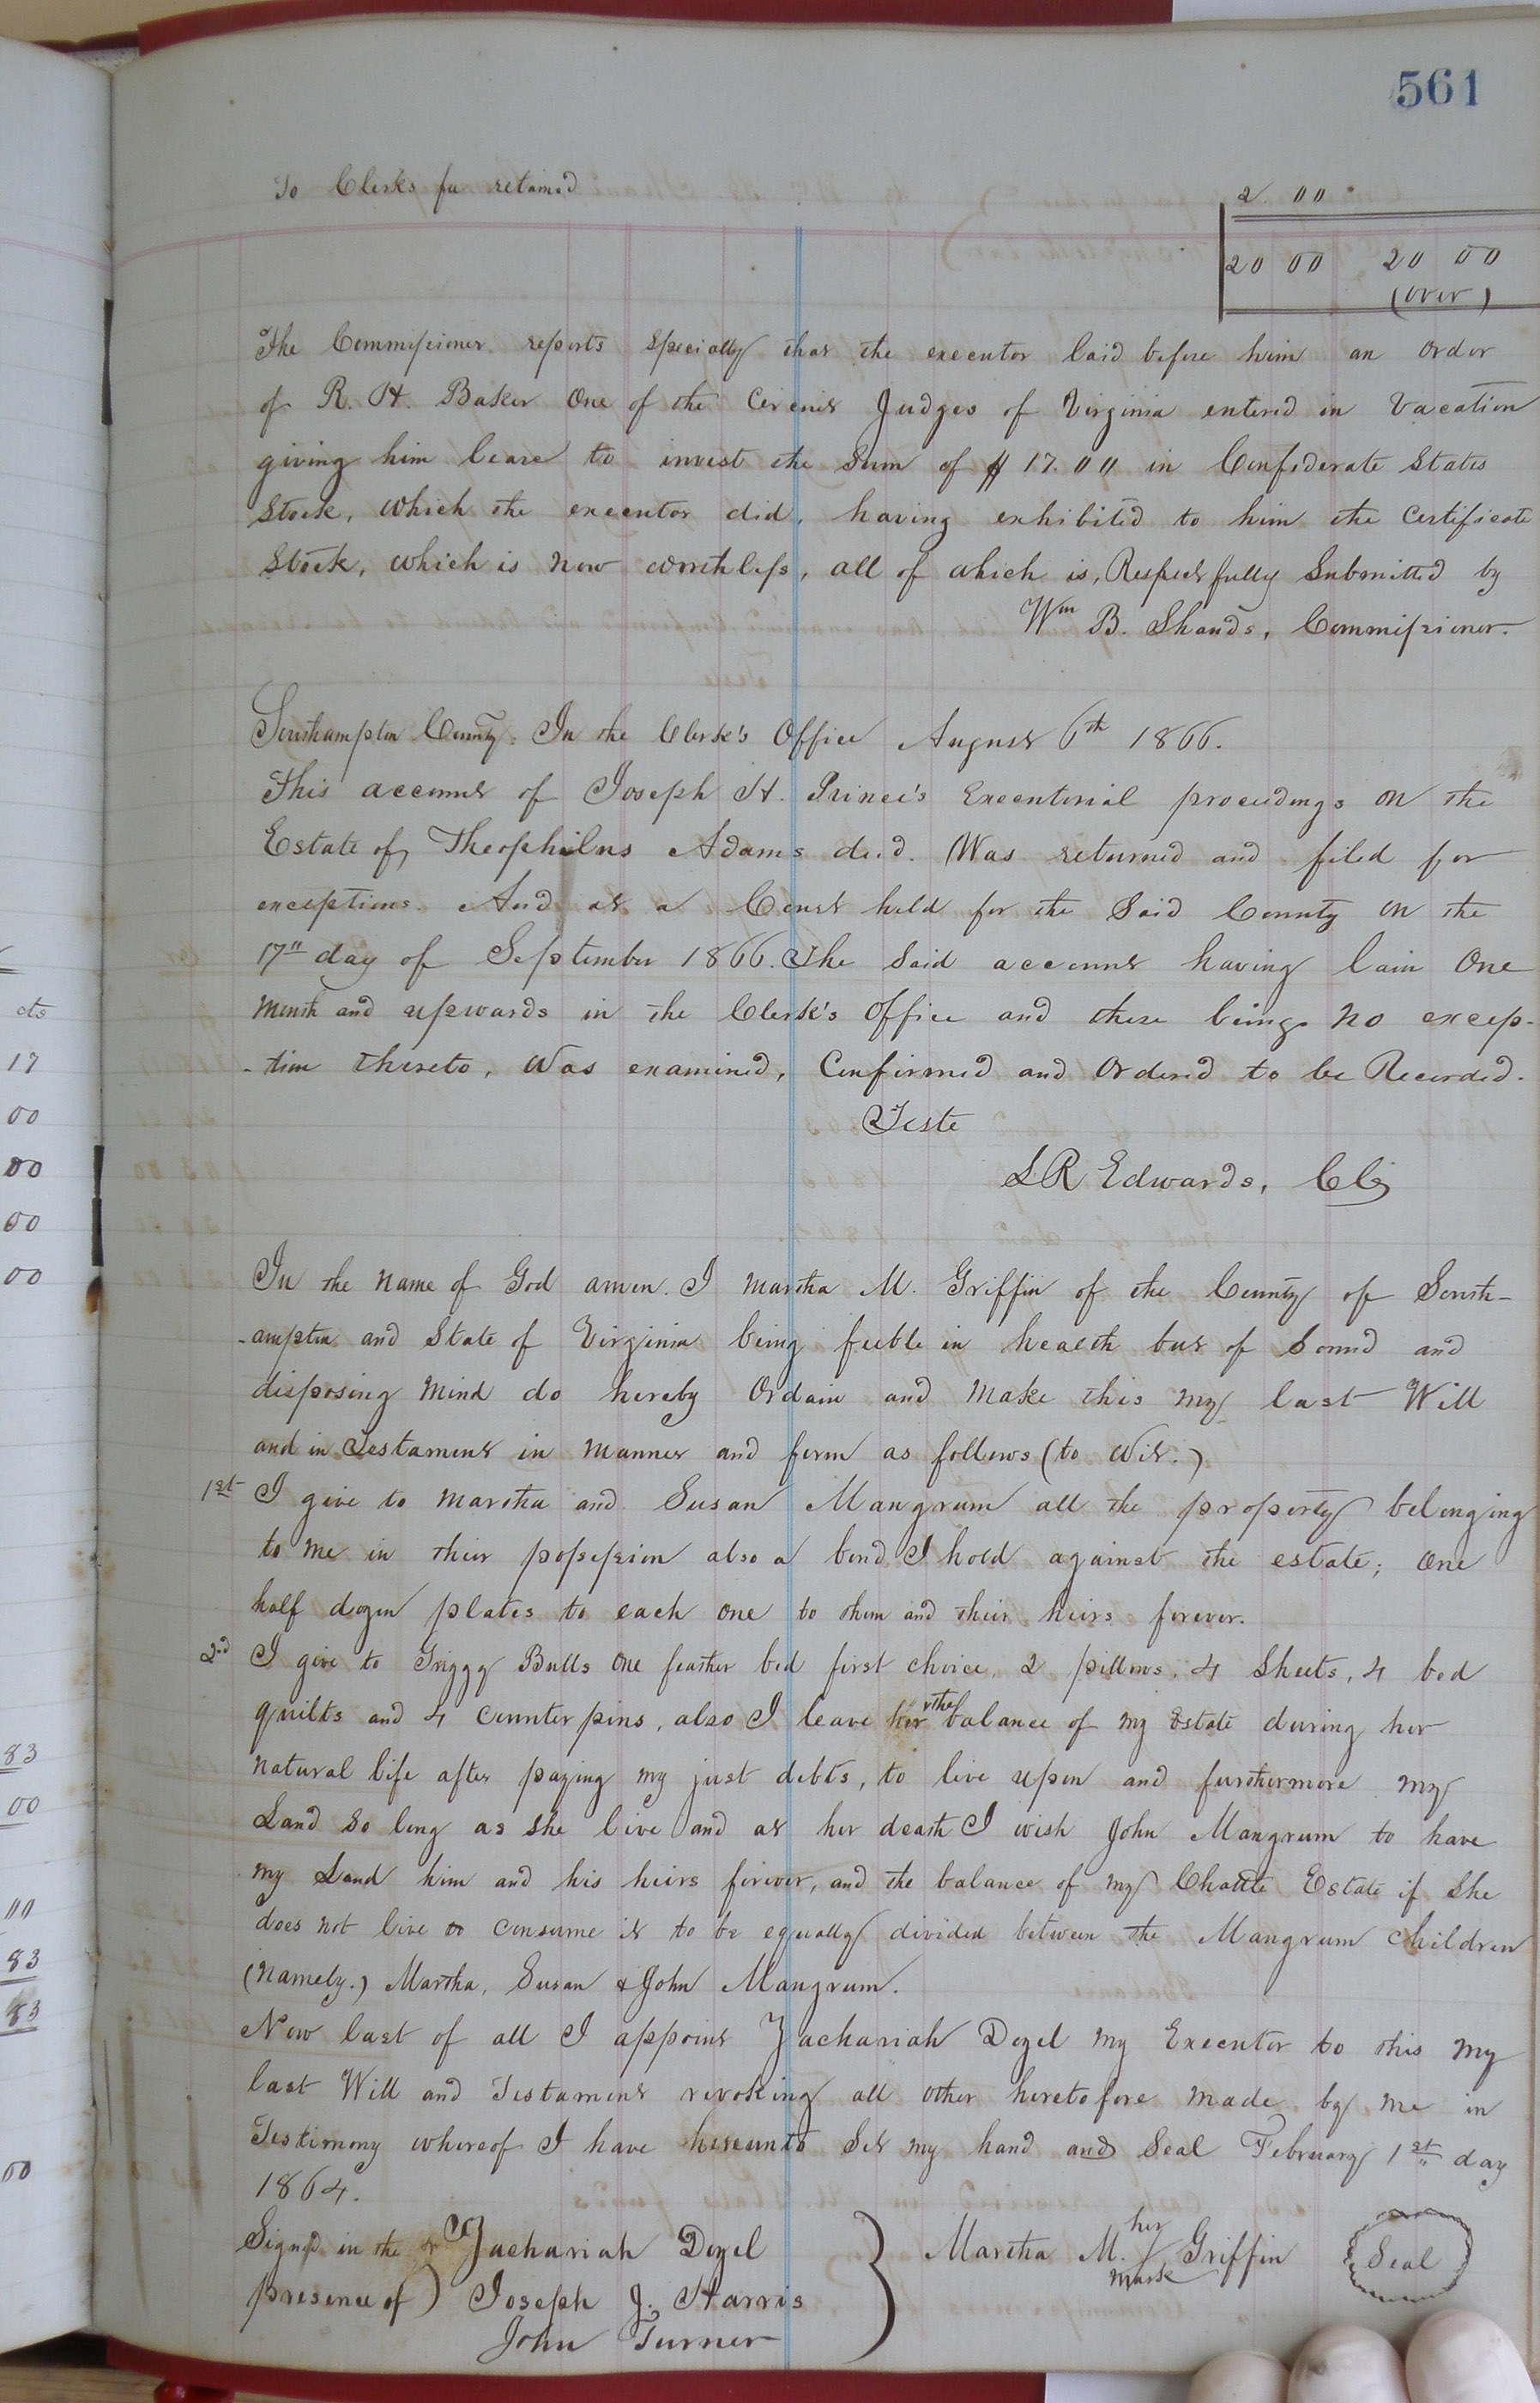 561
To Clerks fee retained 2 00
20 00 20 00
(over)
The Commissioner reports specially that the executor laid before him an order
of R. H. Baker One of the Circuit Judges of Virginia entered in Vacation
giving him leave to invest the sum of $17.00 in Confederate States
Stock, which the executor did, having exhibited to him the Certificate
Stock, which is now worthless, all of which is, Respectfully Submitted by
Wm B. Shands, Commissioner.
Southampton County: In the Clerk's Office August 6th 1866.
This account of Joseph H. Prince's Executorial proceedings on the
Estate of Theophilus Adams decd. Was returned and filed for
exceptions. And at a Court held for the Said County on the
17" day of September 1866. The Said account having lain One
Month and upwards in the Clerk's Office and there being no excep-
-tion thereto, Was examined, Confirmed and Ordered to be Recorded.
Teste
L R Edwards, Clk
In the name of God amen. I Martha M. Griffin of the County of South-
-ampton and State of Virginia being feeble in health but of Sound and
disposing Mind do hereby Ordain and Make this my last Will
and in Testament in Manner and form as follows (to Wit.)
1st I give to Martha and Susan Mangrum all the property belonging
to me in their possession also a bond I hold against the estate; One
half dozen plates to each one to them and their heirs forever.
2nd I give to Griggy Butts One feather bed first choice, 2 pillows, 4 Sheets, 4 bed
quilts and 4 Counter pins, also I leave her the balance of my Estate during her
natural life after paying my just debts, to live upon and furthermore my
Land So long as She live and at her death I wish John Mangrum to have
my Land him and his heirs forever, and the balance of my Chattle Estate if She
does not live to consume it to be equally divided between the Mangrum children
(namely.) Martha, Susan & John Mangrum.
Now last of all I appoint Zachariah Dozel My Executor to this my
last Will and Testament revoking all other heretofore made by me in
Testimony whereof I have hereunto Set my hand and Seal February 1st day
1864.
Signed in the Zachariah Dozel
presence of) Joseph J. Harris
John Turner
Martha M. her mark Griffin Seal
cts
17
00
00
00
00
83
00
00
83
83
00